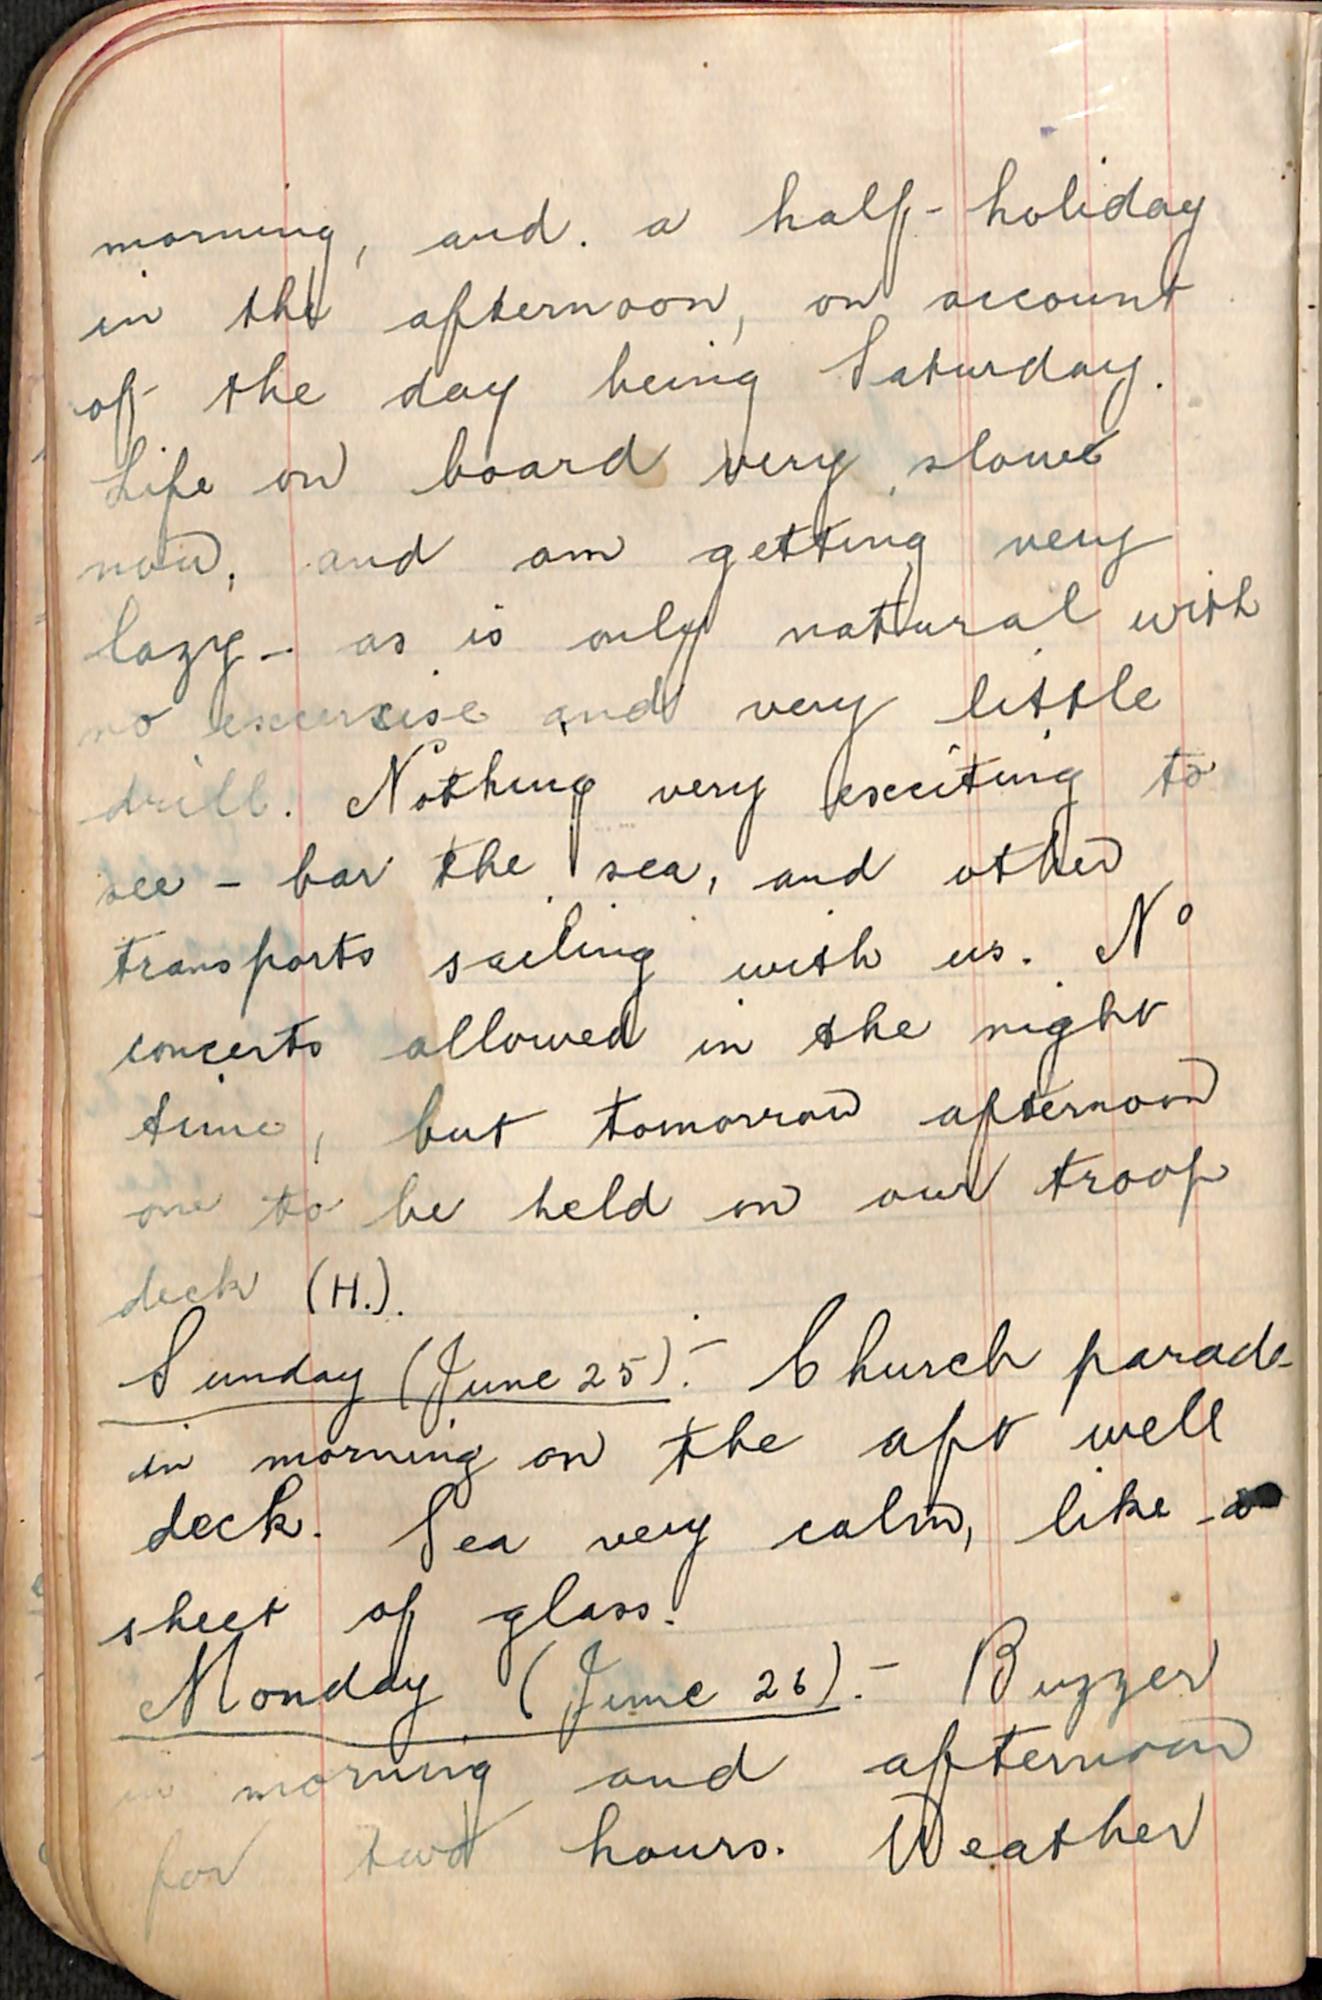 morning, and. a half-holiday
in the afternoon, on account
of the day being Saturday.
Life on board very slow
now, and am getting very
lazy - as is only natural with
no excercise and very little
drill. Nothing very exciting to
see - bar the sea, and other
transports sailing with us. No
concerts allowed in the night
time, but tomorrow afternoon
one to be held on our troop
deck (H.).
Sunday (June 25):- Church parade
in morning on the aft well
deck. Sea very calm, like a
sheet of glass.
Monday (June 26):- Buzzer
in morning and afternoon
for two hours. Weather